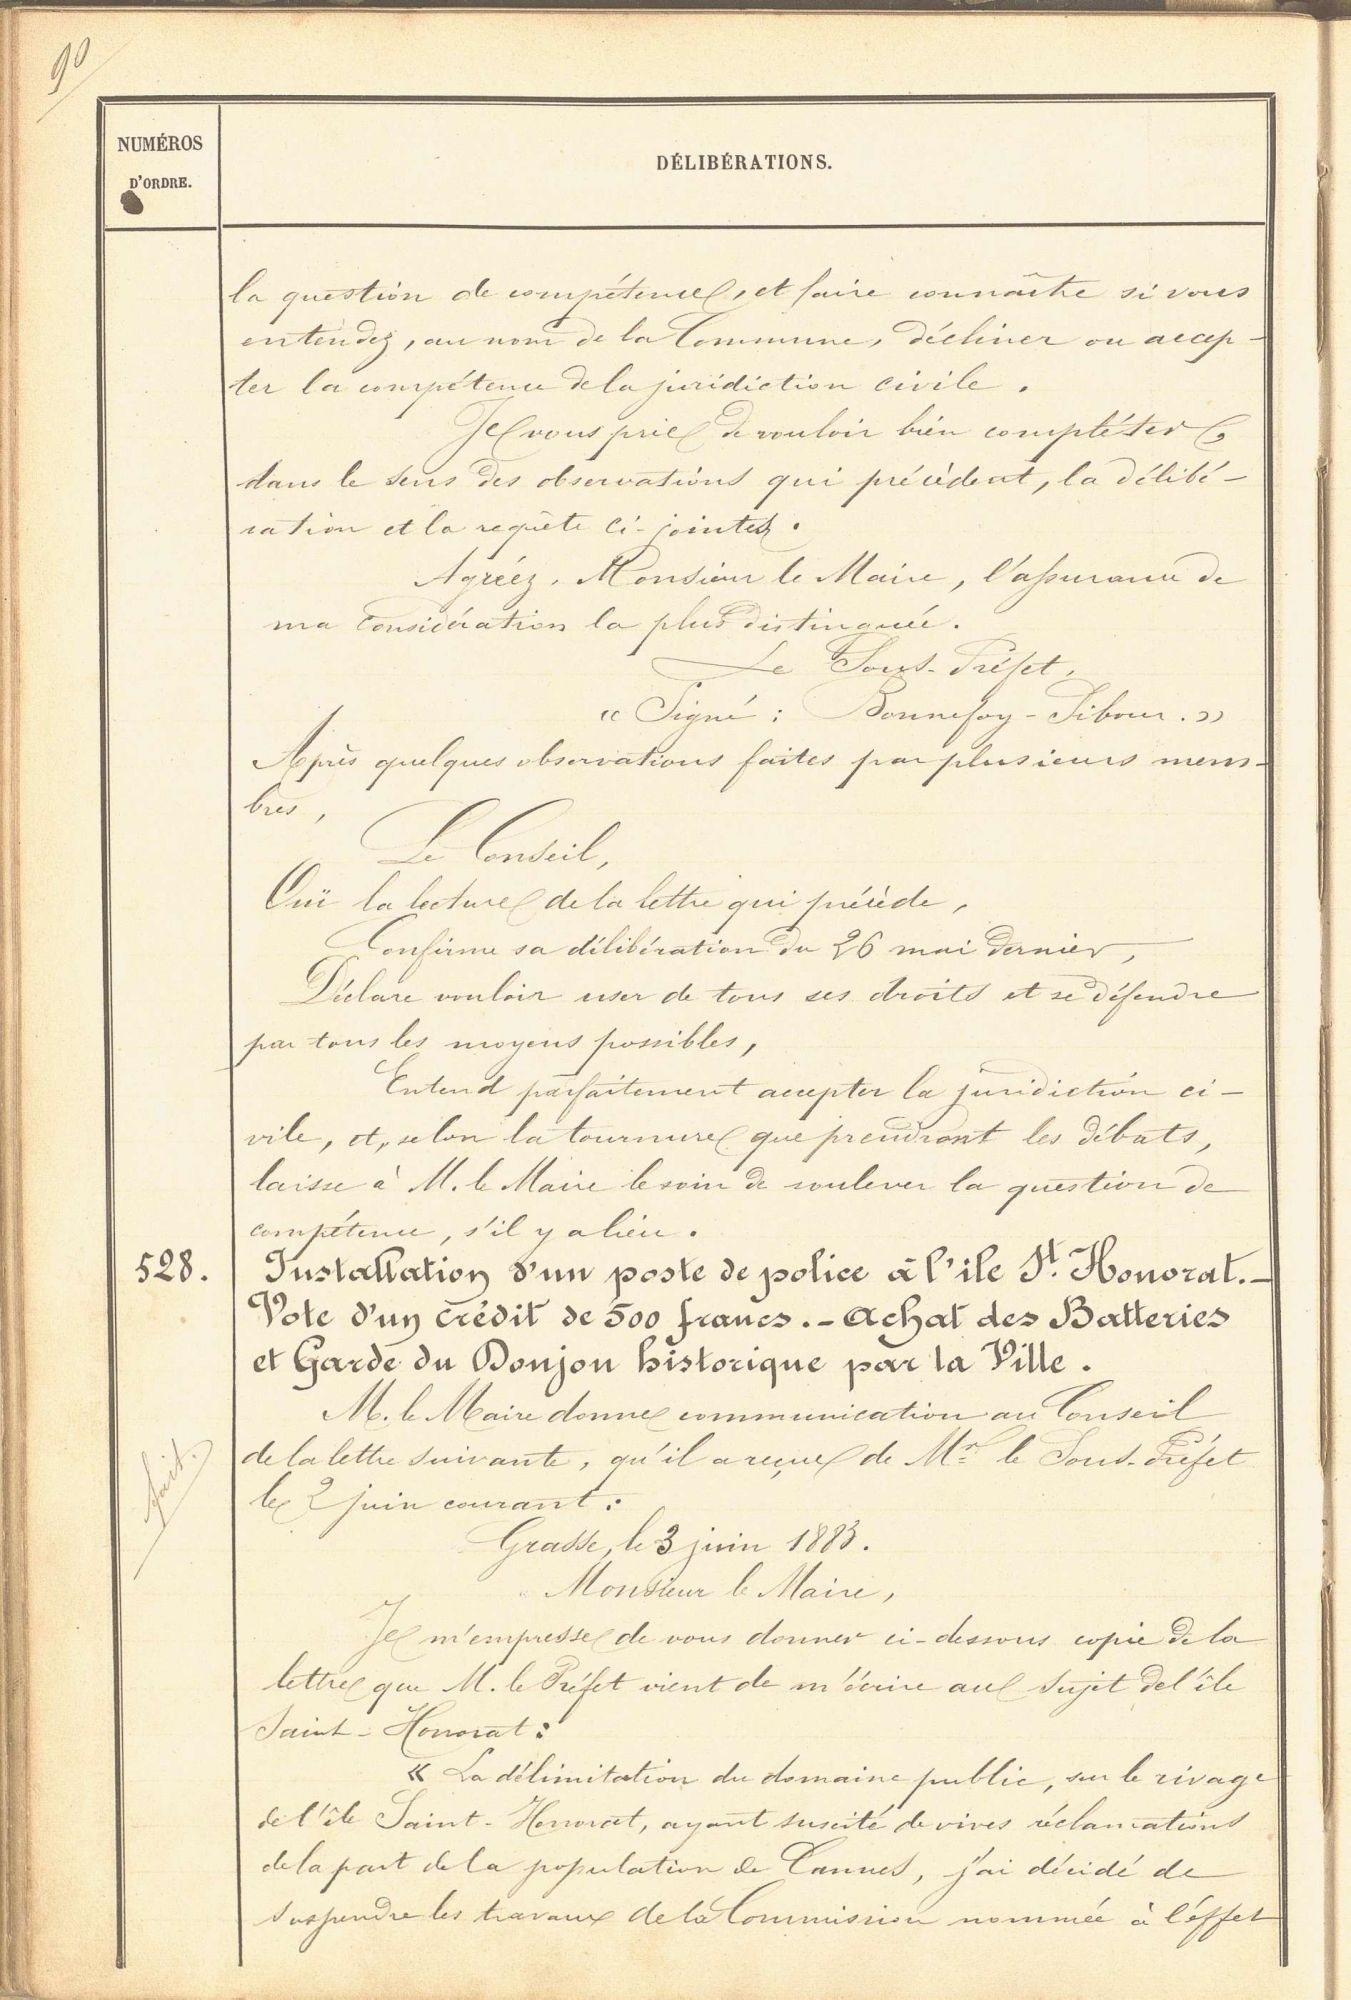 90
NUMÉROS
D'ORDRE.
DÉLIBÉRATIONS.
la question de compétence, et faire connaître si vous
entendez, au nom de la Commune, décliner ou accep-
ter la compétence de la juridiction civile.
Je vous prie de vouloir bien compléter,
dans le sens des observations qui précèdent, la délibé-
ration et la requête ci-jointes.
Agréez, Monsieur le Maire, l'assurance de
ma considération la plus distinguée.
Le Sous-Préfet,
« Signé : Bonnefoy-Sibour. »
Après quelques observations faites par plusieurs mem-
bres,
Le Conseil,
Ouï la lecture de la lettre qui précède,
Confirme sa délibération du 26 mai dernier,
Déclare vouloir user de tous ses droits et se défendre
par tous les moyens possibles,
Entend parfaitement accepter la juridiction ci-
vile, et, selon la tournure que prendront les débats,
laisse à M. le Maire le soin de soulever la question de
compétence, s'il y a lieu.
528. Installation d'un poste de police à l'ile St. Honorat.-
Vote d'un crédit de 500 francs.- Achat des Batteries
et Garde du Donjon historique par la Ville.
M. le Maire donne communication au Conseil
de la lettre suivante, qu'il a reçue de Mr. le Sous-Préfet
le 2 juin courant :
fait.
Grasse, le 3 juin 1883.
Monsieur le Maire,
Je m'empresse de vous donner ci-dessous copie de la
lettre que M. le Préfet vient de m'écrire au sujet de l'île
Saint-Honorat :
« La délimitation du domaine public, sur le rivage
de l'île Saint-Honorat, ayant suscité de vives réclamations
de la part de la population de Cannes, j'ai décidé de
suspendre les travaux de la Commission nommée à l'effet